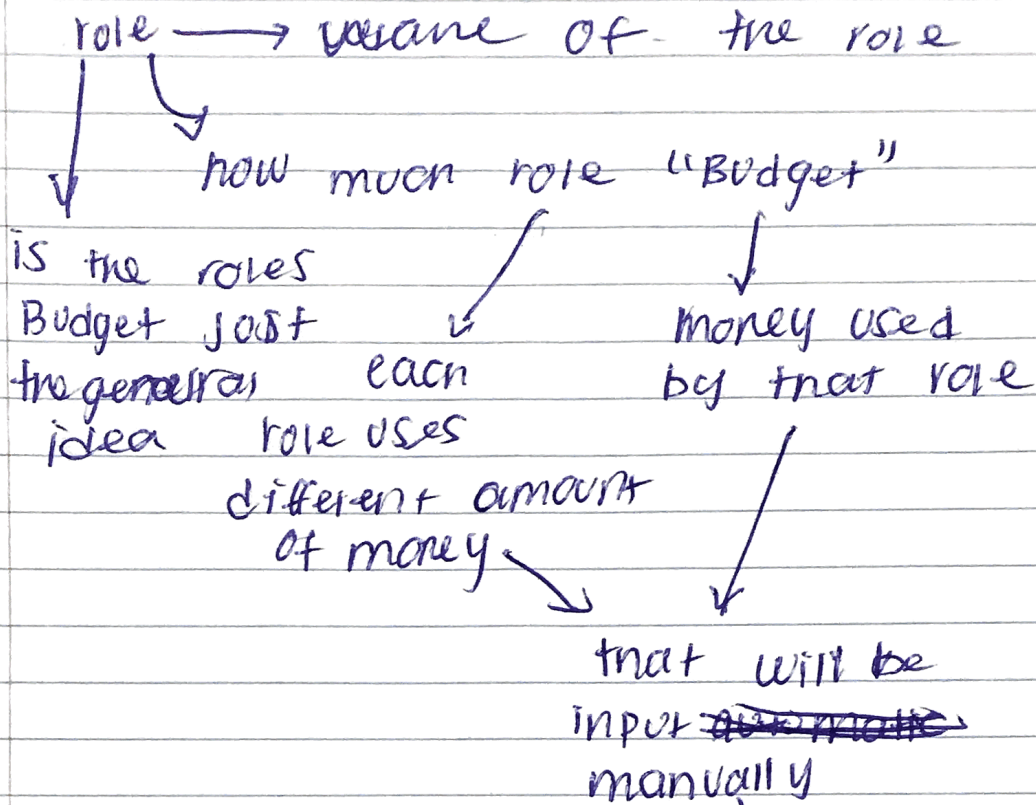 role → usane of the role
how much role "Budget"
is the roles
Budget just
the general
idea
each
role uses
different amount
of money
money used
by that role
that will be
input automatic
manually